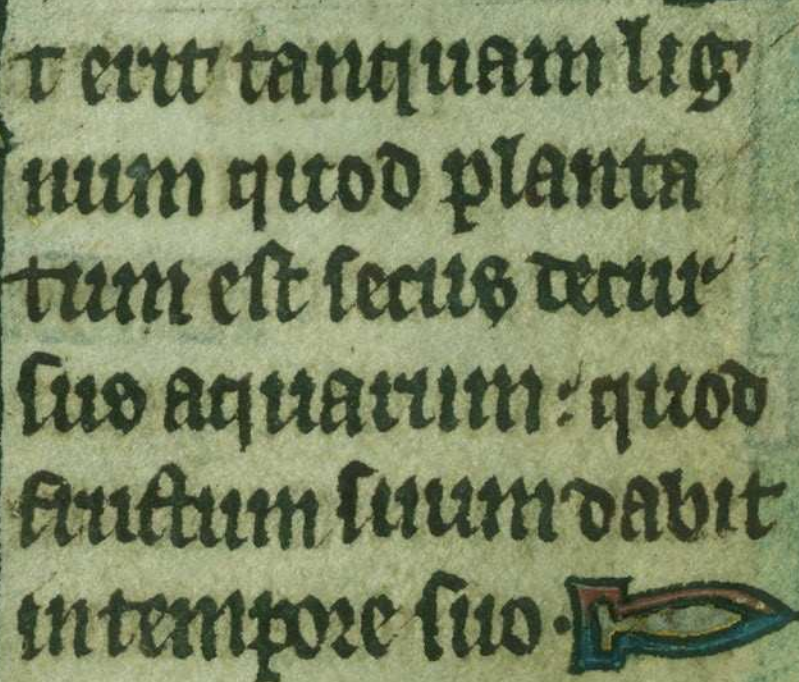 t erit tanquam lig
num quod planta
tum est secus decur
sus aquarum : quod
fructum suum dabit
in tempore suo ·